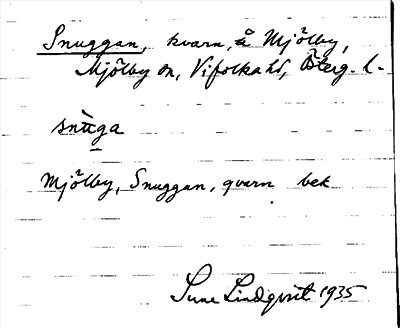 Snuggan, kvarn, å Mjölby,
Mjölby sn, Vifolka hd, Österg. l.
snùga
Mjölby, Snuggan, qvarn bek
Sune Lindqvist 1935